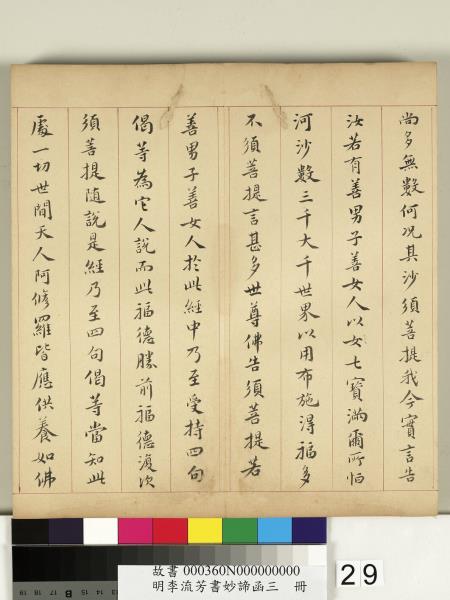 尚多無數何況其沙須菩提我今實言告
汝若有善男子善女人以女七寶滿爾所恒
河沙數三千大千世界以用布施得福多
不須菩提言甚多世尊佛告須菩提若
善男子善女人於此經中乃至受持四句
偈等為它人說而此福德勝前福德復次
須菩提隨說是經乃至四句偈等當知此
處一切世間天人阿修羅皆應供養如佛
故書 000360N000000000
明李流芳書妙諦函三 冊
29